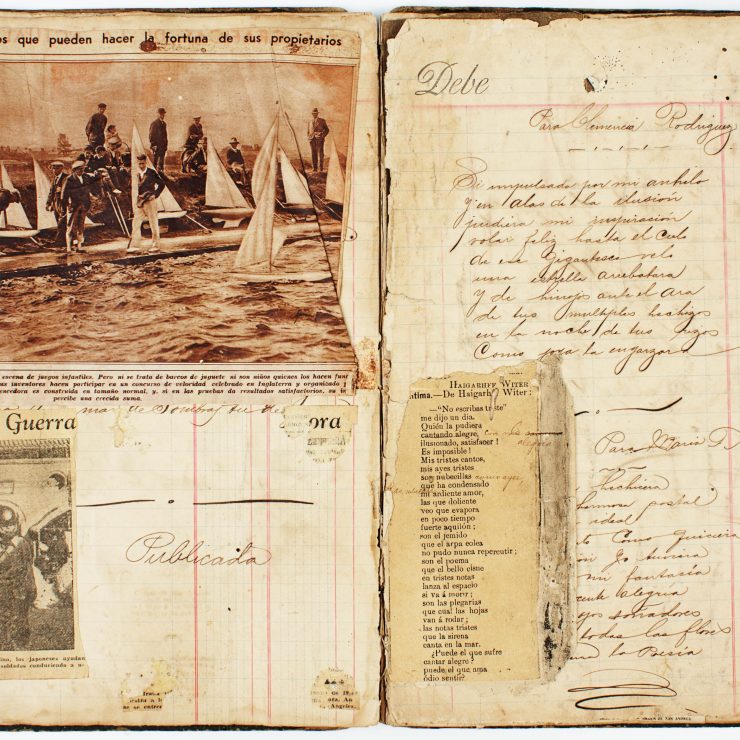 os que pueden hacer la fortuna de sus propietarios
escena de juegos infantiles. Pero ni se trata de barcos de juguete ni son niños quienes los hacen
us inventores hacen participar en un concurso de velocidad celebrado en Inglaterra y organizado
encedora es construida en tamaño normal, y, si en las pruebas da resultados satisfactorios, su
percibe una crecida suma.
Guerra
ora
Publicada
los japoneses ayudan
soldados conducida a
Debe
Para Clemencia Rodriguez
Si impulsada por mi anhelo
y en alas de la ilusión
pudiera mi inspiración
volar feliz hasta el Cielo
de ese Gigantesco velo
una estrella arrebatara
y de hinojos ante el ara
de tus multiples hechizos
en la noche de tus rizos
Como joya la engarzara
HAIGARHFF WITER
ntima.—De Haigarh Witer:
—"No escribas triste"
me dijo un día.
Quién la pudiera
cantando alegre,
ilusionado, satisfacer!
Es imposible!
Mis tristes cantos,
mis ayes tristes
son nubecillas
que ha condensado
mi ardiente amor,
las que doliente
veo que evapora
en poco tiempo
fuerte aquilón;
son el jemido
que el arpa eolea
no pudo nunca repercutir;
son el poema
que el bello cisne
en tristes notas
lanza al espacio
si va á morir;
son las plegarias
que cual las hojas
van á rodar;
las notas tristes
que la sirena
canta en la mar.
¿Puede el que sufre
cantar alegre?
puede el que ama
odio sentir?
Para Maria
Hechicera
hermosa postal
ideal
Como quisiera
Yo tuviera
mi fantasía
alegria
ojos soñadores
todas las flores
la Poesía